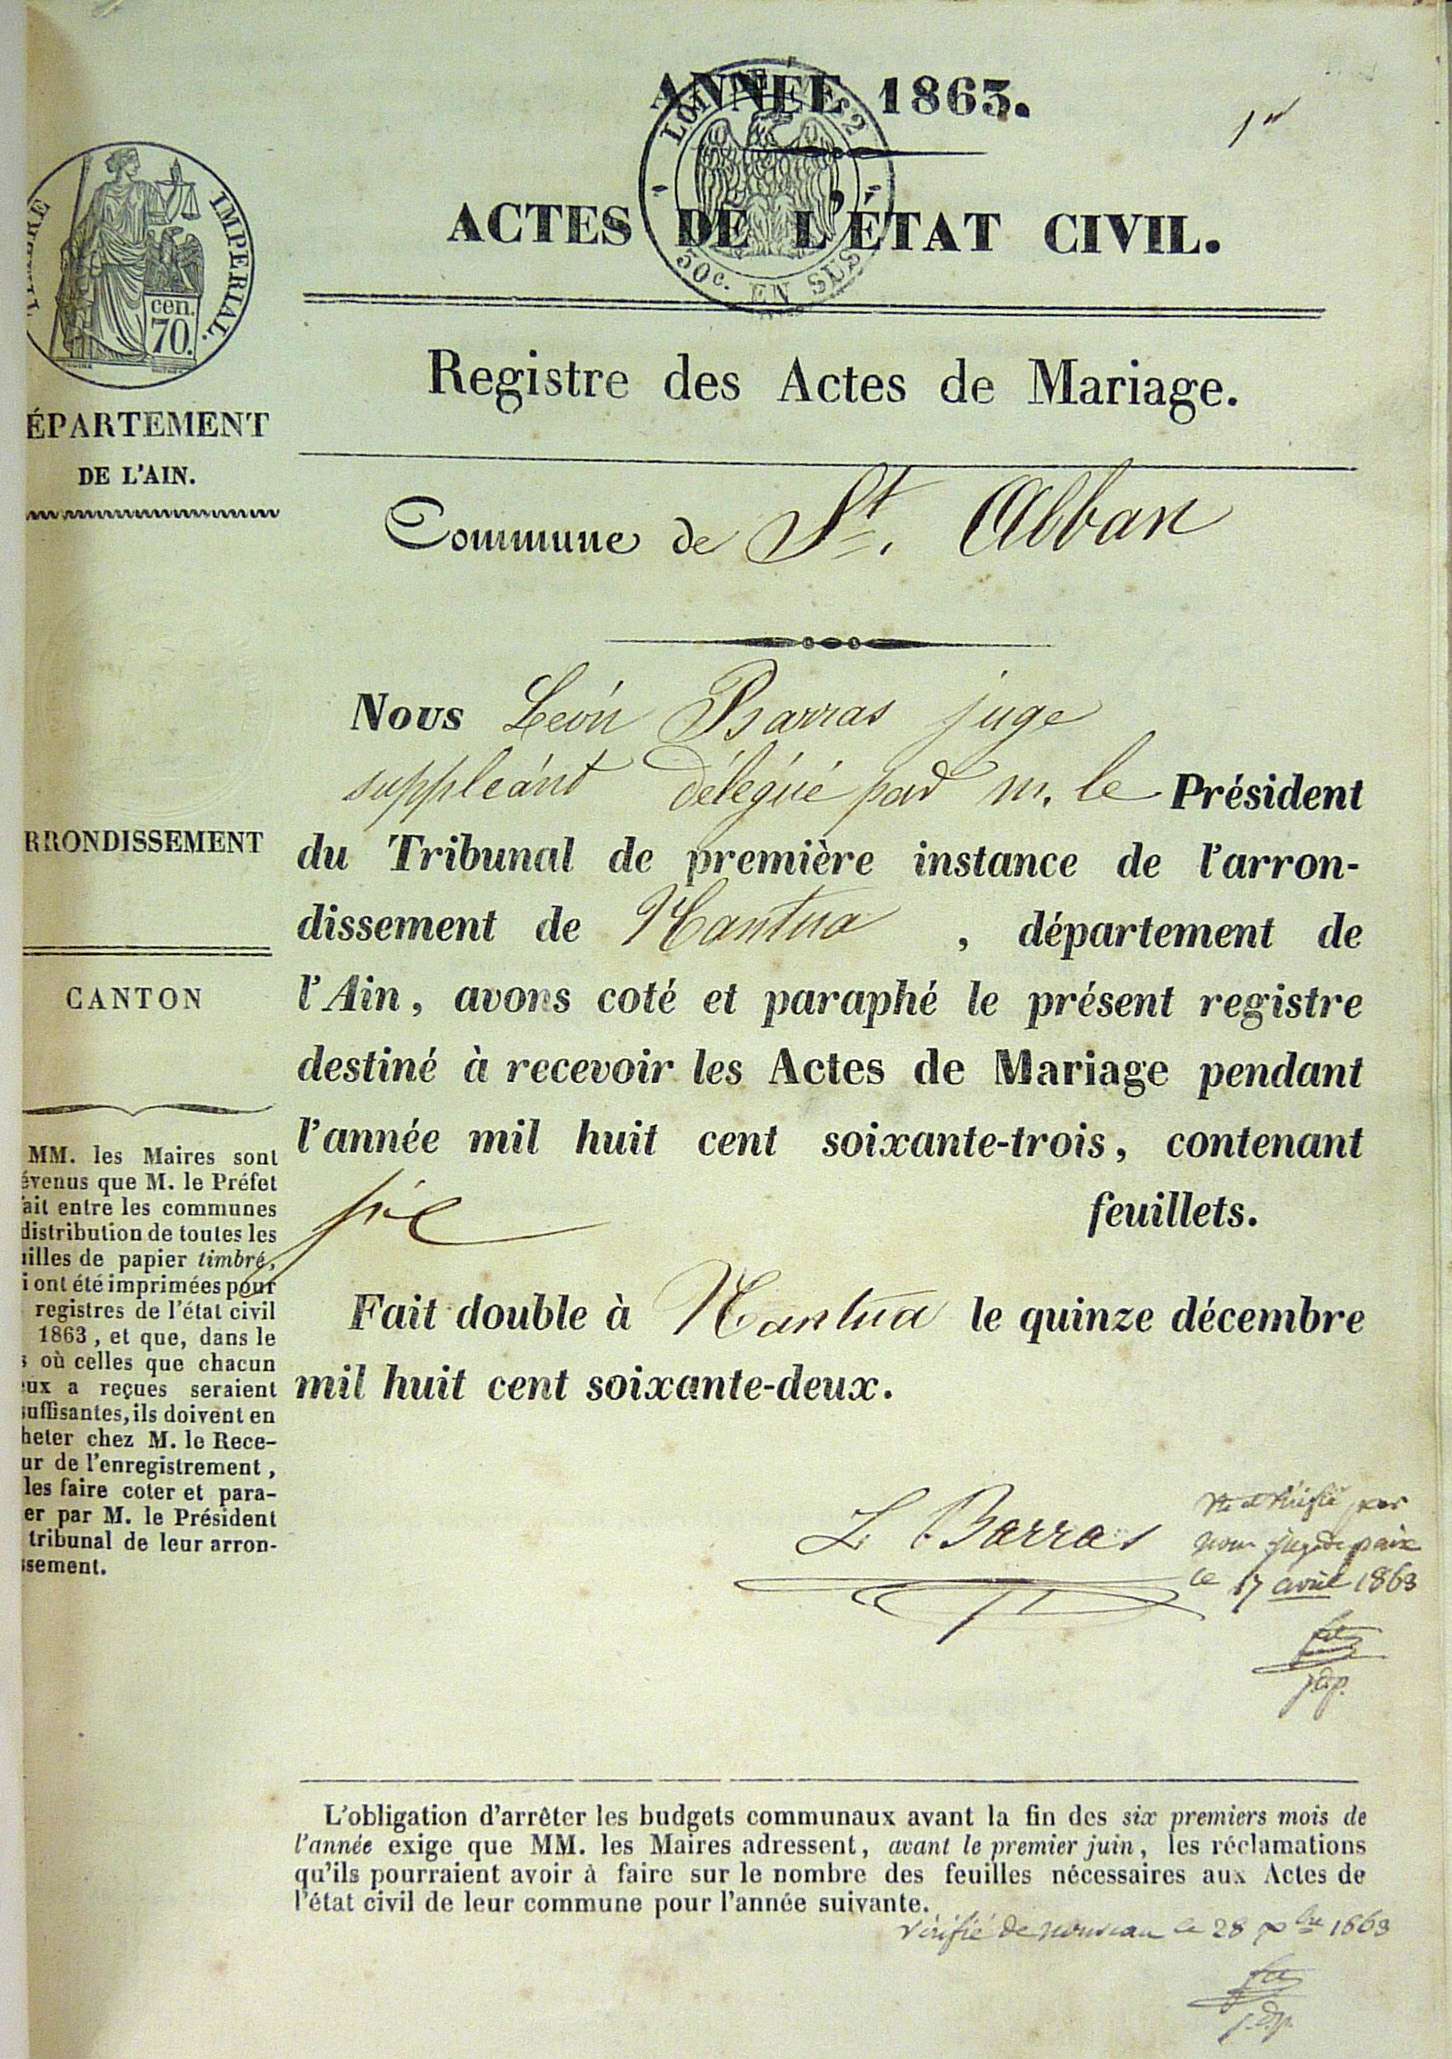 ANNÉE 1863.
1er
LOI DE 1862
50c. EN SUS
ACTES DE L'ÉTAT CIVIL.
TIMBRE IMPERIAL.
cen.
70.
Registre des Actes de Mariage.
ÉPARTEMENT
DE L'AIN.
Commune de St. Alban
Nous Léon Barras juge
suppléant délégué par m. le Président
du Tribunal de première instance de l'arron-
dissement de Nantua, département de
l'Ain, avons coté et paraphé le présent registre
destiné à recevoir les Actes de Mariage pendant
l'année mil huit cent soixante-trois, contenant
six feuillets.
Fait double à Nantua le quinze décembre
mil huit cent soixante-deux.
RRONDISSEMENT
CANTON
MM. les Maires sont
évenus que M. le Préfet
ait entre les communes
distribution de toutes les
uilles de papier timbré,
i ont été imprimées pour
registres de l'état civil
1863, et que, dans le
s où celles que chacun
eux a reçues seraient
suffisantes, ils doivent en
heter chez M. le Rece-
ur de l'enregistrement,
les faire coter et para-
er par M. le Président
tribunal de leur arron-
ssement.
L. Barras
Vu et vérifié par
nous juge de paix
le 17 avril 1863
j.d.p.
L'obligation d'arrêter les budgets communaux avant la fin des six premiers mois de
l'année exige que MM. les Maires adressent, avant le premier juin, les réclamations
qu'ils pourraient avoir à faire sur le nombre des feuilles nécessaires aux Actes de
l'état civil de leur commune pour l'année suivante.
Vérifié de nouveau le 28 xbre 1863
j.d.p.